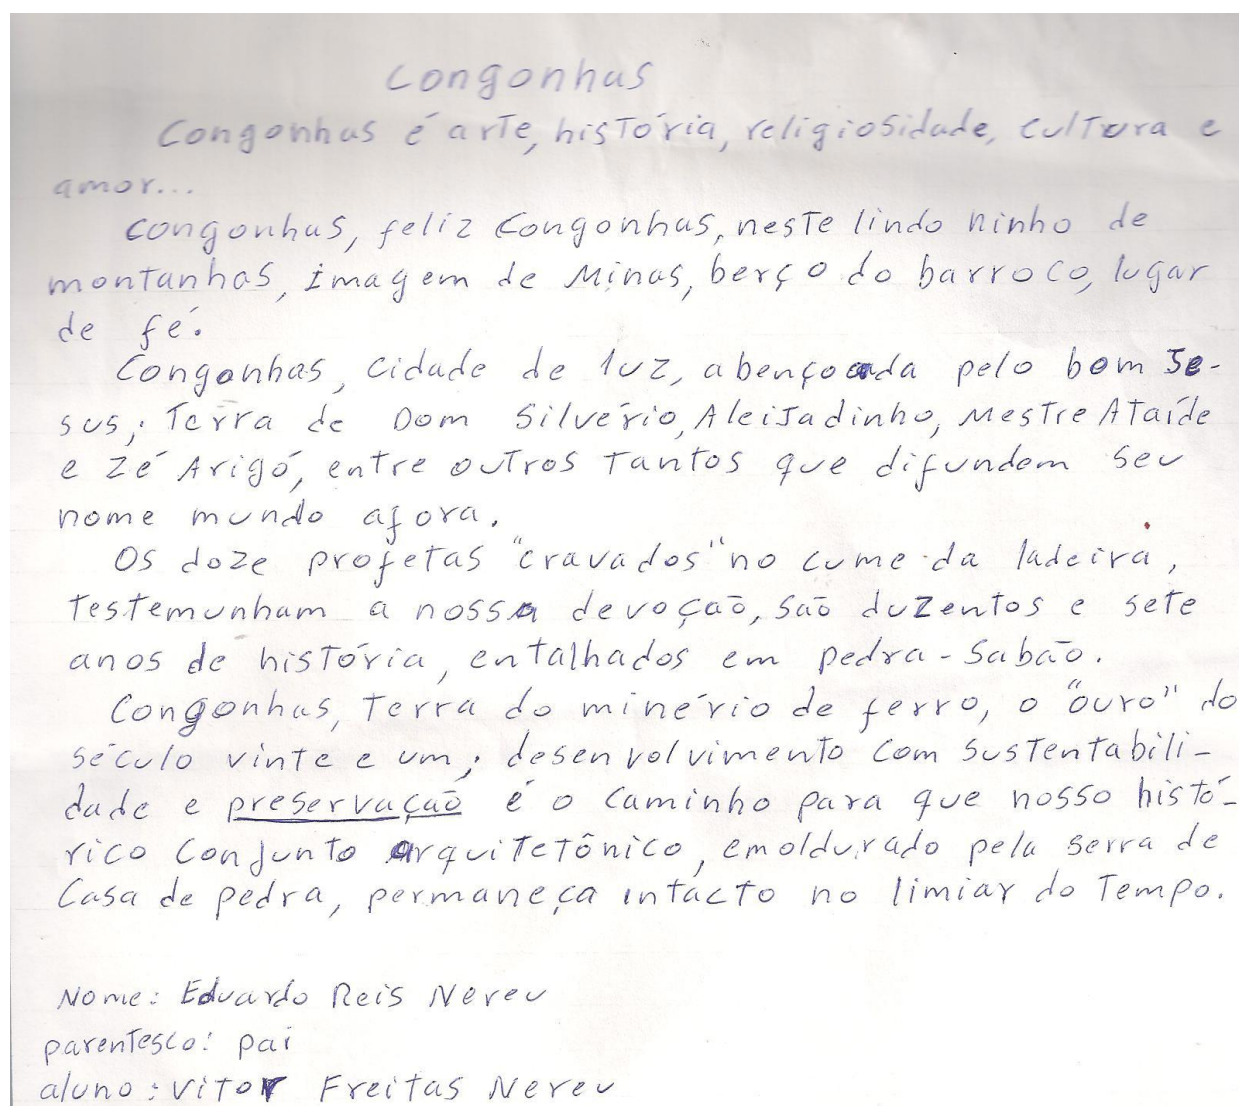 Congonhas
Congonhas é arte, história, religiosidade, cultura e
amor...
Congonhas, feliz Congonhas, neste lindo ninho de
montanhas, imagem de Minas, berço do barroco, lugar
de fé.
Congonhas, cidade de luz, abençoada pelo bom Je-
sus; Terra de Dom Silvério, Aleijadinho, Mestre Ataíde
e Zé Arigó, entre outros tantos que difundem seu
nome mundo afora.
Os doze profetas "cravados" no cume da ladeira,
testemunham a nossa devoção, são duzentos e sete
anos de história, entalhados em pedra-sabão.
Congonhas, terra do minério de ferro, o "ouro" do
século vinte e um; desenvolvimento com sustentabili-
dade e preservação é o caminho para que nosso histó-
rico conjunto arquitetônico, emoldurado pela serra de
Casa de pedra, permaneça intacto no limiar do Tempo.
Nome: Eduardo Reis Nereu
parentesco: pai
aluno: Vitor Freitas Nereu